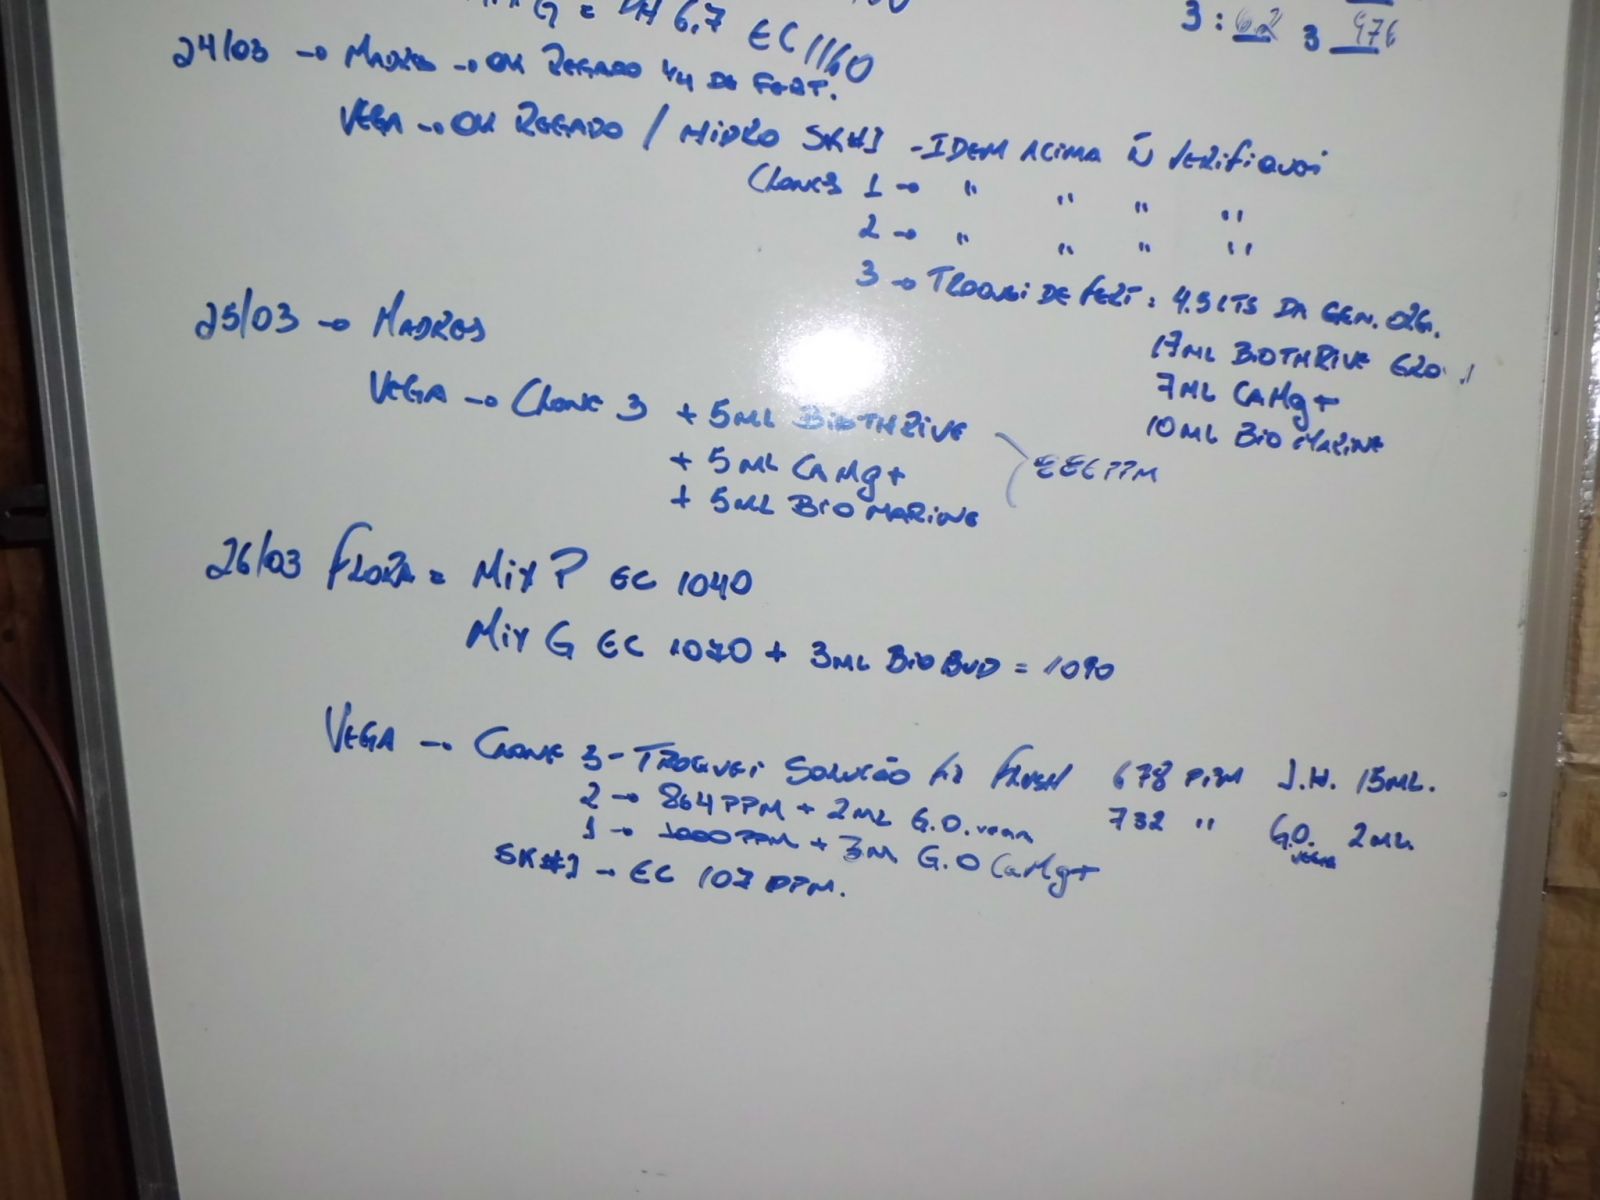 G = PH 6,7 EC 1160
3 : 62 3 476
24/03 → MADRES → OK REGADO 44 DE FERT.
VEGA → OK REGADO / HIDRO SK#1 - IDEM ACIMA Ñ VERIFIQUEI
CLONES 1 → " " " "
2 → " " " "
3 → TROQUEI DE FERT : 4.5 LTS DA GEN. ORG.
17ML BIOTHRIVE GRO
7ML CAMg+
10ML BIO MARINE
25/03 → MADRES
VEGA → CLONE 3 + 5ML BIOTHRIVE
+ 5ML CAMg+
+ 5ML BIO MARINE
PPM
26/03 FLORA = MIX P EC 1040
MIX G EC 1070 + 3ML BIO BUD = 1090
VEGA → CLONE 3 - TROQUEI SOLUÇÃO P/ FLUSH 678 PPM J.H. 15ML.
2 → 864 PPM + 2ML G.O. VEGA 732 " G.O. VEGA 2ML.
1 → 1000 PPM + 3M G.O CaMg+
SK#1 → EC 107 PPM.